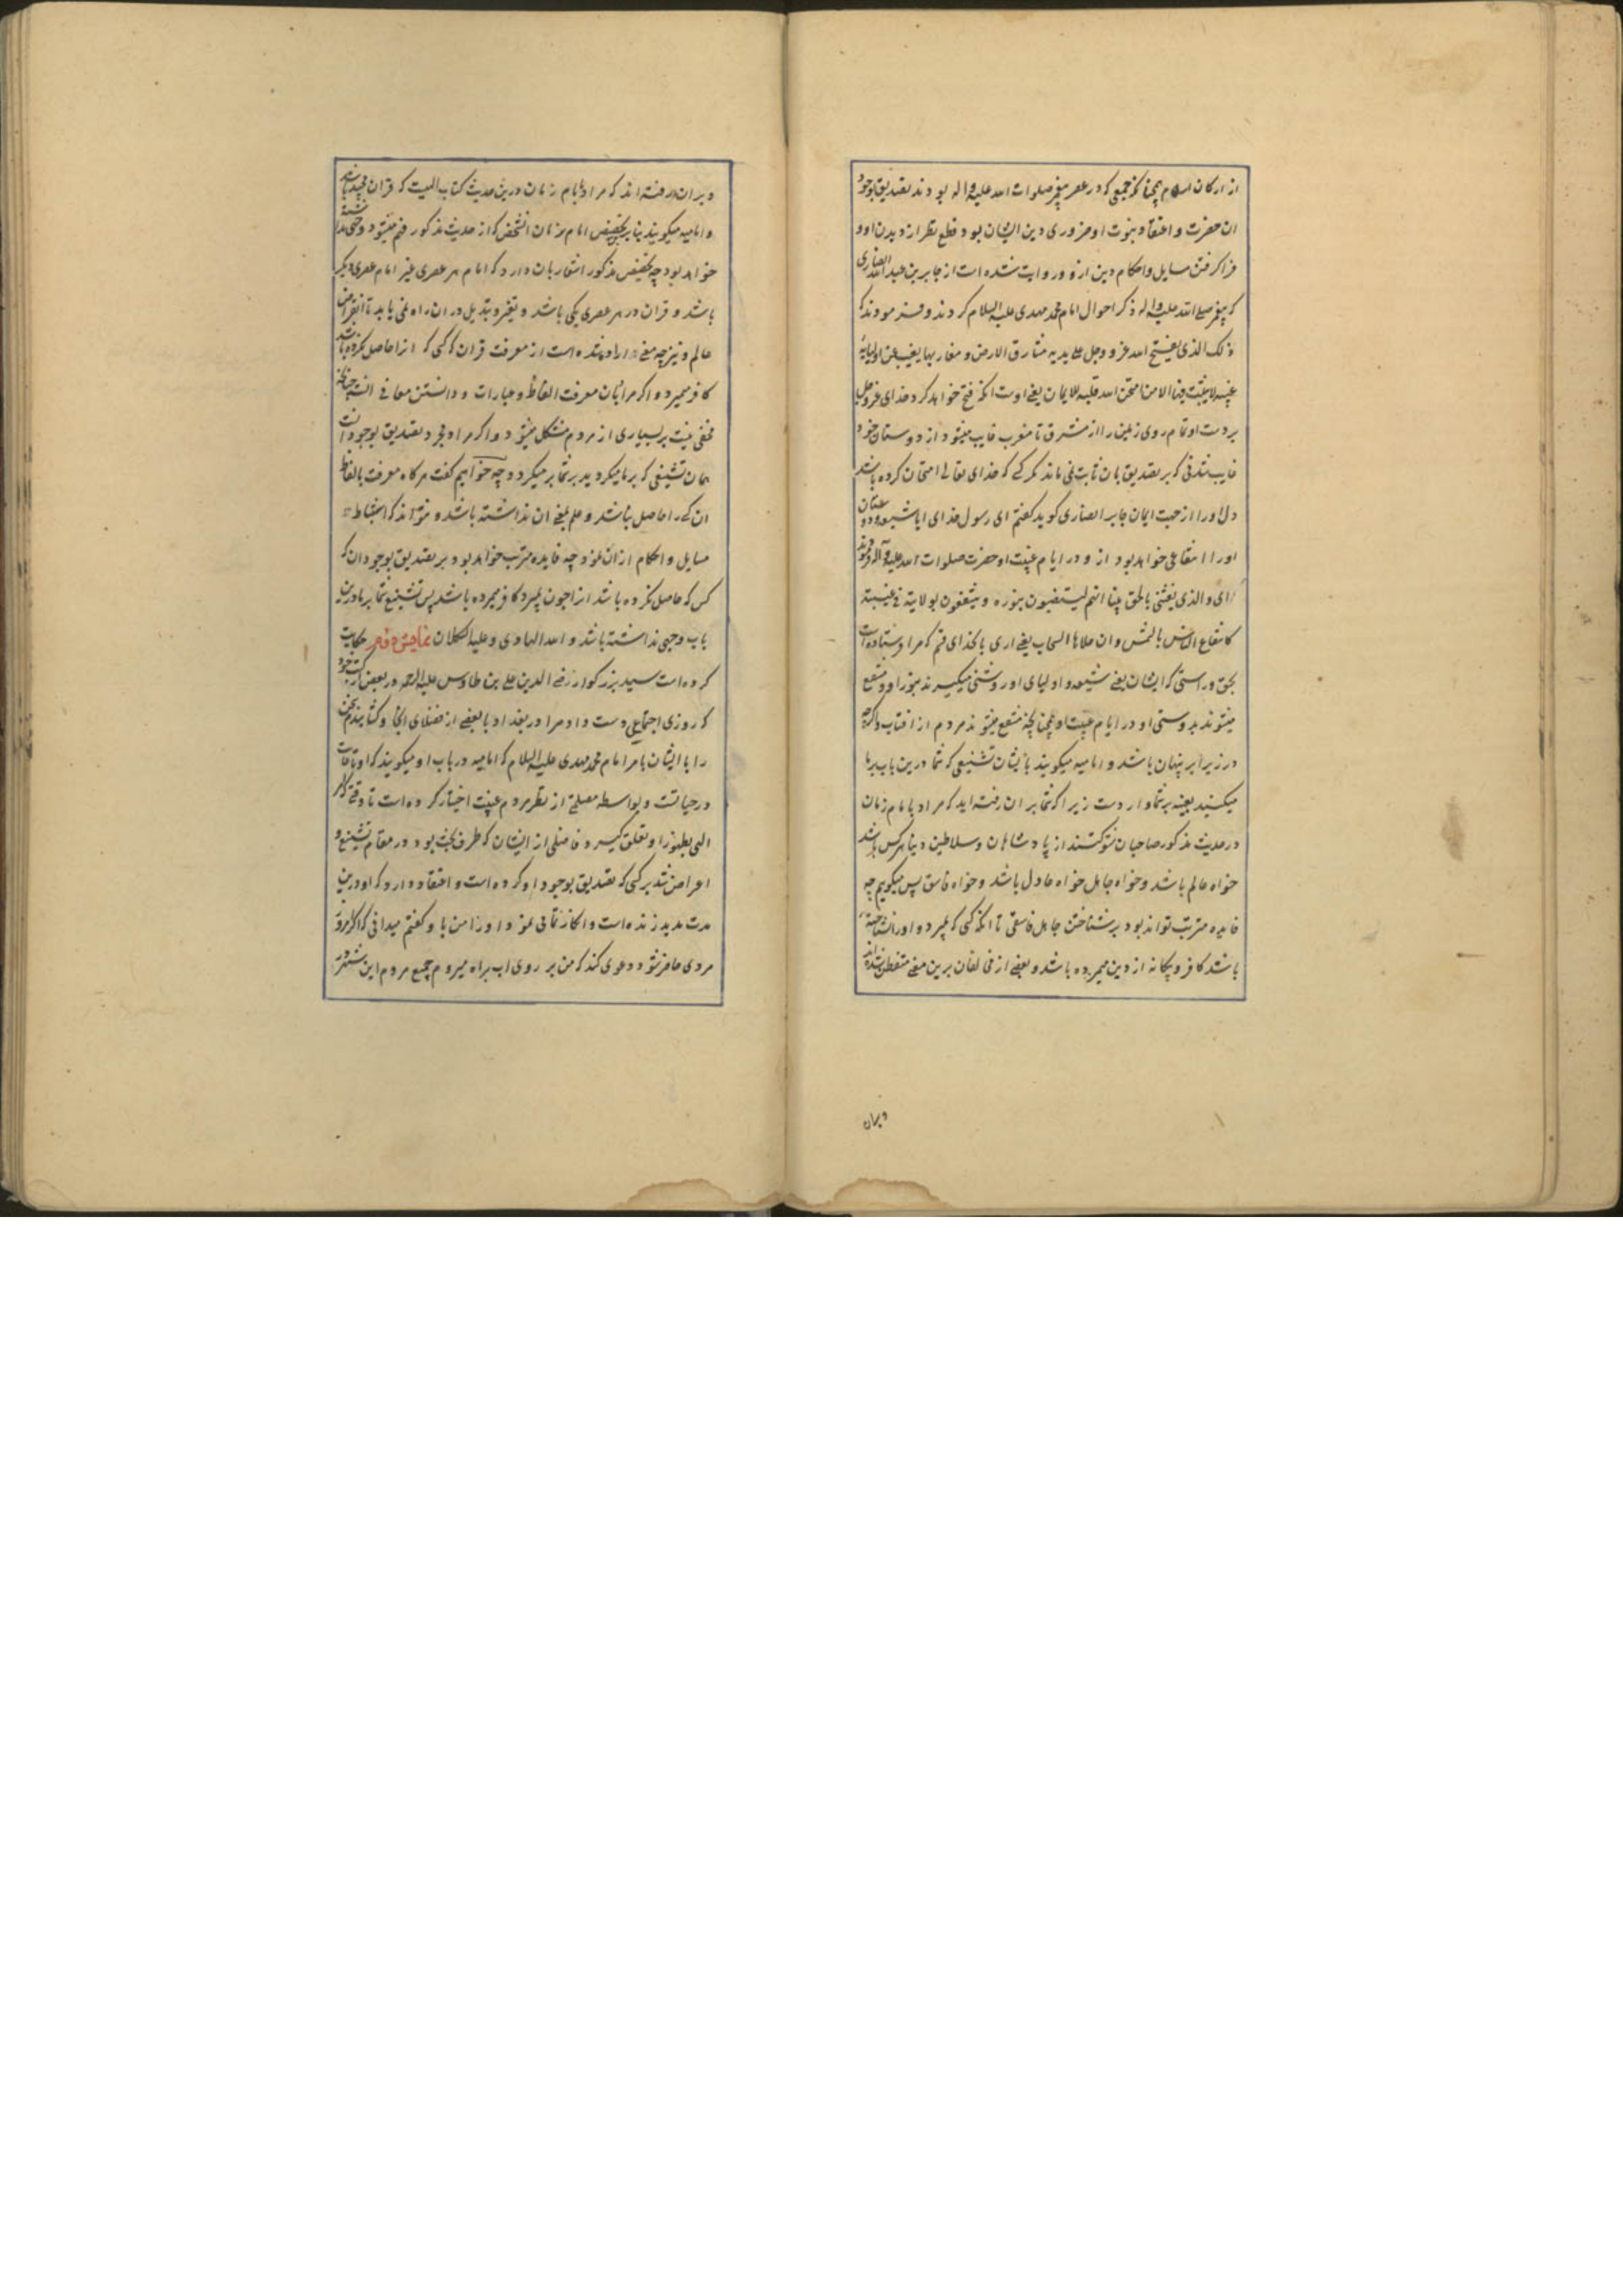 از ارکان اسلام همچنانکه جمعی که در عصر پیغمبر صلوات الله علیه و اله بودند تصدیق بوجود
ان حضرت و اعتقاد بنبوت او ضروری دین ایشان بود و قطع نظر از دیدن او و
فرا گرفتن مسایل و احکام دین ازو و روایت شده است از جابر بن عبد الله انصاری
که پیغمبر صلی الله علیه و اله ذکر احوال امام محمد مهدی علیه السلام کردند و فرمودند که
ذلک الذی یفتح الله عز و جل علی یدیه مشارق الارض و مغاربها یغیب عن اولیایه
غیبه لا یثبت فیها الا من امتحن الله قلبه للایمان یعنی اوست انکه فتح خواهد کرد خدای عز و جل
بر دست او تمام روی زمین را از مشرق تا مغرب غایب میشود از دوستان خود
غایب شدنی که بر تصدیق بان ثابت نمی ماند مگر کسی که خدای تعالی امتحان کرده باشد
دل او را از جهت ایمان جابر انصاری گوید گفتم ای رسول خدای ایا شیعه و دوستان
او را انتفاعی خواهد بود ازو در ایام غیبت او حضرت صلوات الله علیه و آله فرمودند
ای و الذی بعثنی بالحق نبیا انهم لیستضیئون بنوره و ینتفعون بولایته فی غیبته
کانتفاع الناس بالشمس و ان علاها السحاب یعنی اری بانخدای قسم که مرا فرستاده است
بحق و راستی که ایشان یعنی شیعه و اولیای او روشنی میگیرند بنور او و منتفع
میشوند بدوستی او در ایام غیبت او همچنانچه منتفع میشوند مردم از افتاب و اگرچه
در زیر ابر پنهان باشد و امامیه میگویند بایشان تشنیعی که شما درین باب بر ما
میکنید بعینه بر شما وارد است زیرا که شما بر ان رفته اید که مراد بامام زمان
در حدیث مذکور صاحبان شوکتند از پادشاهان و سلاطین دنیا هر کس باشد
خواه عالم باشد و خواه جاهل خواه عادل باشد و خواه فاسق پس میگویم چه
فایده مترتب تواند بود بر شناختن جاهل فاسقی تا انکه کسی که بمیرد و او را نشناخته
باشد کافر و بیگانه از دین مرده باشد و بعضی از مخالفان برین معنی متفطن شده اند
و بران
و بران رفته اند که مراد بامام زمان درین حدیث کتاب الهیست که قران مجید باشد
و امامیه میگویند بنا برین تخصیص امام بزمان انشخص که از حدیث مذکور فهم میشود وجهی نداشته
خواهد بود چه تخصیص مذکور اشعار بان دارد که امام هر عصری غیر امام عصری دیگر
باشد و قران در هر عصری یکی باشد و تغیر و تبدیل در ان راه نمی یابد تا انقراض
عالم و نیز چه معنی اراده شده است از معرفت قران که کسی که انرا حاصل نکرده باشد
کافر میمیرد و اگر مراد بان معرفت الفاظ و عبارات و دانستن معانی انست چنانکه
مخفی نیست بر بسیاری از مردم مشکل میشود و اگر مراد مجرد تصدیق بوجود انست
همان تشنیعی که بر ما میکردید بر شما بر میگردد و چه خواهیم گفت هرگاه معرفت بالفاظ
ان کسی را حاصل نباشد و علم بمعنی ان نداشته باشد و نتواند که استنباط
مسایل و احکام از ان نمود چه فایده مترتب خواهد بود بر تصدیق بوجود ان که
کسی که حاصل نکرده باشد انرا چون بمیرد کافر مرده باشد پس تشنیع شما بر ما درین
باب وجهی نداشته باشد و الله الهادی و علیه التکلان حکایت
کرده است سید بزرگوار رضی الدین علی بن طاوس علیه الرحمه در بعض از کتب خود
که روزی اجتماعی دست داد مرا در بغداد با بعضی از فضلای انجا و کشانیدم سخن
را با ایشان بامر امام محمد مهدی علیه السلام که امامیه در باب او میگویند که او تا غایت
در حیاتست و بواسطه مصلحتی از نظر مردم غیبت اختیار کرده است تا وقتی که امر
الهی بظهور او تعلق گیرد و فاضلی از ایشان که طرف بحث بود در مقام تشنیع و
اعراض شد بر کسی که تصدیق بوجود او کرده است و اعتقاد دارد که او درین
مدت مدید زنده است و انکار تمامی نمود او را من باو گفتم میدانی که اگر امروز
مردی حاضر شود و دعوی کند که من بر روی اب براه میروم جمیع مردم این شهر در